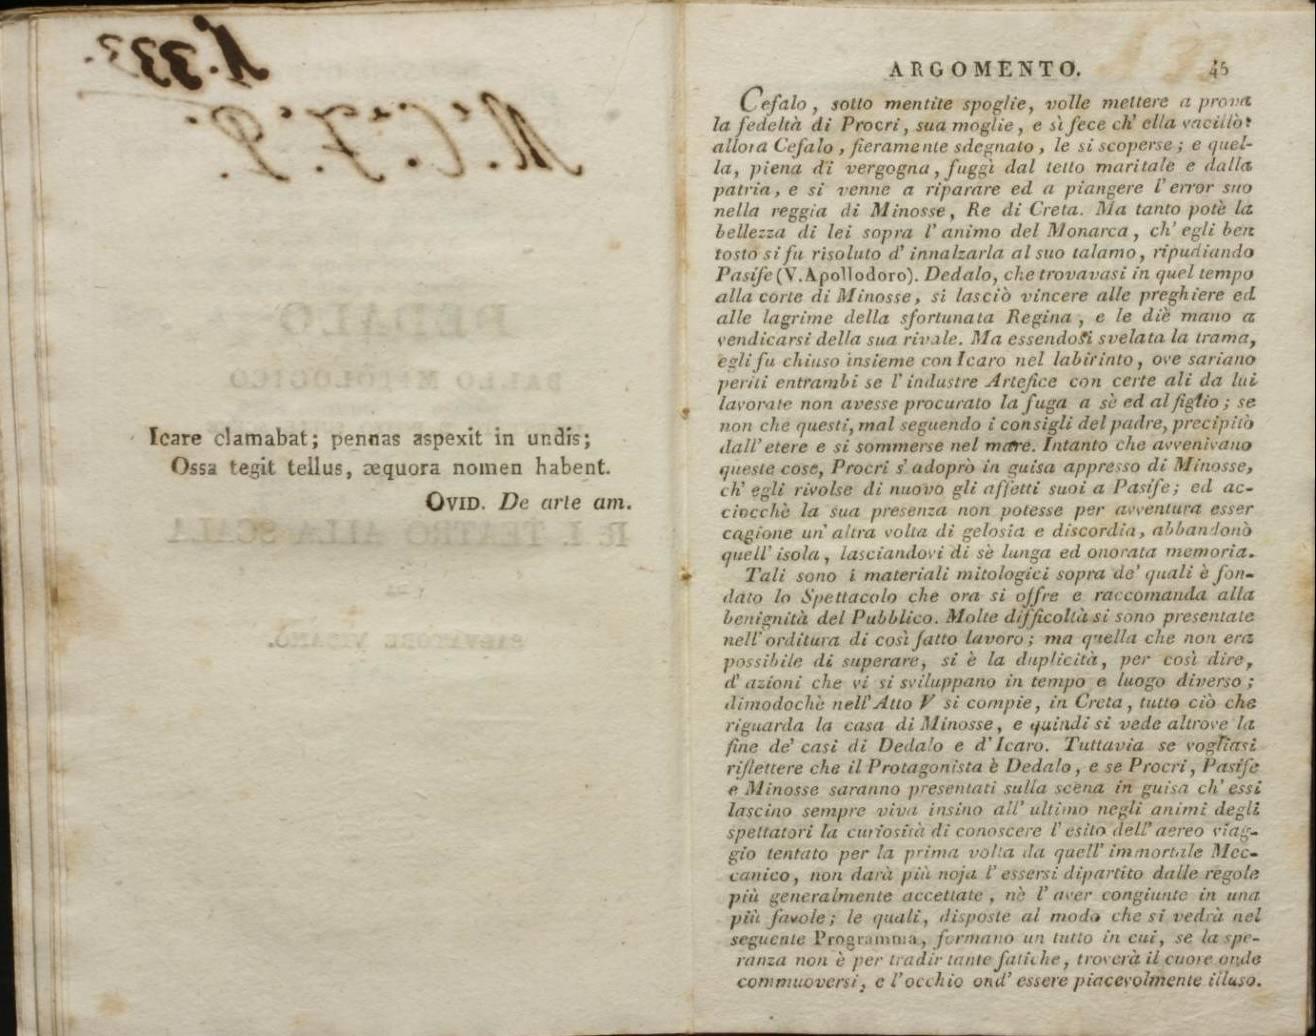 Icare clamabat; pennas aspexit in undis;
Ossa tegit tellus, æquora nomen habent.
OVID. De arte am.
ARGOMENTO. 45
Cefalo, sotto mentite spoglie, volle mettere a prova
la fedeltà di Procri, sua moglie, e sì fece ch' ella vacillò:
allora Cefalo, fieramente sdegnato, le si scoperse; e quel-
la, piena di vergogna, fuggì dal tetto maritale e dalla
patria, e si venne a riparare ed a piangere l' error suo
nella reggia di Minosse, Re di Creta. Ma tanto potè la
bellezza di lei sopra l' animo del Monarca, ch' egli ben
tosto si fu risoluto d' innalzarla al suo talamo, ripudiando
Pasife (V. Apollodoro). Dedalo, che trovavasi in quel tempo
alla corte di Minosse, si lasciò vincere alle preghiere ed
alle lagrime della sfortunata Regina, e le diè mano a
vendicarsi della sua rivale. Ma essendosi svelata la trama,
egli fu chiuso insieme con Icaro nel labirinto, ove sariano
periti entrambi se l' industre Artefice con certe ali da lui
lavorate non avesse procurato la fuga a sè ed al figlio; se
non che questi, mal seguendo i consigli del padre, precipitò
dall' etere e si sommerse nel mare. Intanto che avvenivano
queste cose, Procri s' adoprò in guisa appresso di Minosse,
ch' egli rivolse di nuovo gli affetti suoi a Pasife; ed ac-
ciocchè la sua presenza non potesse per avventura esser
cagione un' altra volta di gelosia e discordia, abbandonò
quell' isola, lasciandovi di sè lunga ed onorata memoria.
Tali sono i materiali mitologici sopra de' quali è fon-
dato lo Spettacolo che ora si offre e raccomanda alla
benignità del Pubblico. Molte difficoltà si sono presentate
nell' orditura di così fatto lavoro; ma quella che non era
possibile di superare, si è la duplicità, per così dire,
d' azioni che vi si sviluppano in tempo e luogo diverso;
dimodochè nell' Atto V si compie, in Creta, tutto ciò che
riguarda la casa di Minosse, e quindi si vede altrove la
fine de' casi di Dedalo e d' Icaro. Tuttavia se vogliasi
riflettere che il Protagonista è Dedalo, e se Procri, Pasife
e Minosse saranno presentati sulla scena in guisa ch' essi
lascino sempre viva insino all' ultimo negli animi degli
spettatori la curiosità di conoscere l' esito dell' aereo viag-
gio tentato per la prima volta da quell' immortale Mec-
canico, non darà più noja l' essersi dipartito dalle regole
più generalmente accettate, nè l' aver congiunte in una
più favole; le quali, disposte al modo che si vedrà nel
seguente Programma, formano un tutto in cui, se la spe-
ranza non è per tradir tante fatiche, troverà il cuore onde
commuoversi, e l' occhio ond' essere piacevolmente illuso.